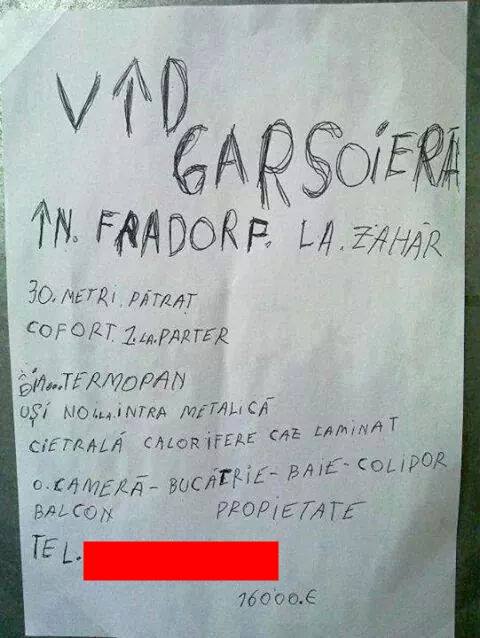 VÎD
GARSOiERĂ
ÎN. FRADORF. LA. ZAHĂR
30. METRI. PĂTRAT
COFORT. 1. LA. PARTER
TERMOPAN
UȘI NOI LA. INTRA METALICĂ
CIETRALĂ CALORIFERE CAZ LAMINAT
O. CAMERĂ - BUCĂTRIE - BAIE - COLIDOR
BALCON PROPIETATE
TEL.
16000.€